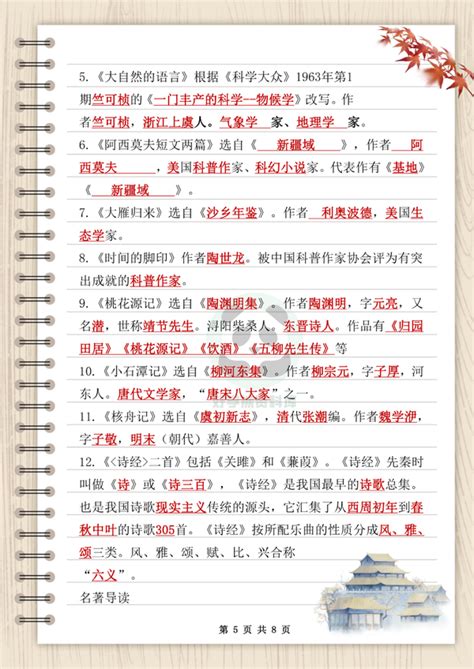 5.《大自然的语言》根据《科学大众》1963年第1
期竺可桢的《一门丰产的科学--物候学》改写。作
者竺可桢，浙江上虞人。气象学 家、地理学 家。
6.《阿西莫夫短文两篇》选自《 新疆域 》。作者 阿
西莫夫 ，美国科普作家、科幻小说家。代表作有《基地》
《 新疆域 》。
7.《大雁归来》选自《沙乡年鉴》。作者 利奥波德，美国生
态学家。
8.《时间的脚印》作者陶世龙。被中国科普作家协会评为有突
出成就的科普作家。
9.《桃花源记》选自《陶渊明集》。作者陶渊明，字元亮，又
名潜，世称靖节先生。浔阳柴桑人。东晋诗人。作品有《归园
田居》《桃花源记》《饮酒》《五柳先生传》等
10.《小石潭记》选自《柳河东集》。作者柳宗元，字子厚，河
东人。唐代文学家，“唐宋八大家”之一。
11.《核舟记》选自《虞初新志》，清代张潮编。作者魏学洢，
字子敬，明末（朝代）嘉善人。
12.《<诗经>二首》包括《关雎》和《蒹葭》。《诗经》先秦时
叫做《诗》或《诗三百》，《诗经》是我国最早的诗歌总集。
也是我国诗歌现实主义传统的源头，它汇集了从西周初年到春
秋中叶的诗歌305首。《诗经》按所配乐曲的性质分成风、雅、
颂三类。风、雅、颂、赋、比、兴合称
“六义”。
名著导读
第 5 页 共 8 页